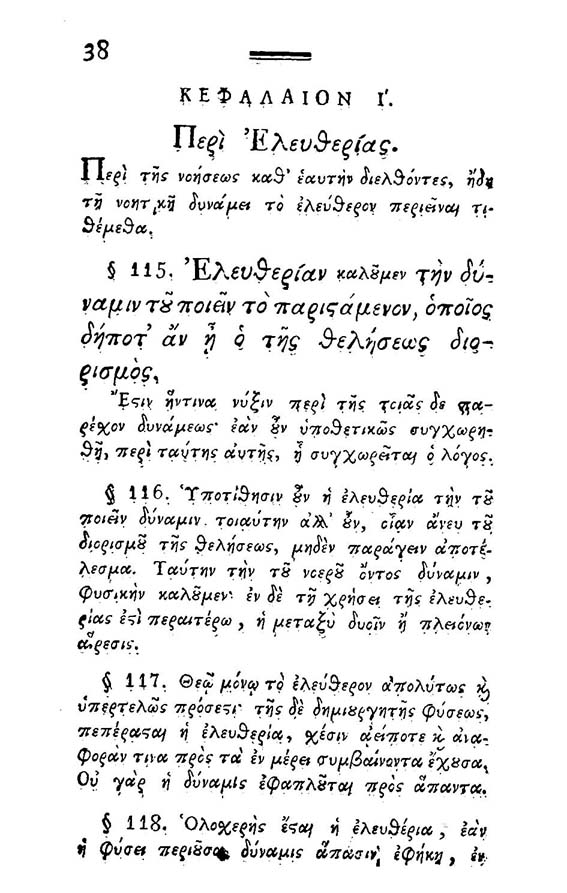 38
ΚΕΦΑΛΑΙΟΝ Ι'.
Περὶ Ἐλευθερίας.
Περὶ τῆς νοήσεως καθ' ἑαυτὴν διελθόντες, ἤδη
τῇ νοητικῇ δυνάμει τὸ ἐλεύθερον περιεῖναι τι-
θέμεθα.
§ 115. Ἐλευθερίαν καλοῦμεν τὴν δύ-
ναμιν τοῦ ποιεῖν τὸ παριστάμενον, ὁποῖος
δήποτ' ἂν ᾖ ὁ τῆς θελήσεως διο-
ρισμὸς.
Ἔστιν ἥντινα νύξιν περὶ τῆς τοιᾶς δε πα-
ρέχον δυνάμεως· ἐὰν οὖν ὑποθετικῶς συγχωρη-
θῇ, περὶ ταύτης αὐτῆς, ἢ συγχωρεῖται ὁ λόγος.
§ 116. Ὑποτίθησιν οὖν ἡ ἐλευθερία τὴν τοῦ
ποιεῖν δύναμιν τοιαύτην ἀλλ' οὖν, οἵαν ἄνευ τοῦ
διορισμοῦ τῆς θελήσεως, μηδὲν παράγειν ἀποτέ-
λεσμα. Ταύτην τὴν τοῦ νοεροῦ ὄντος δύναμιν,
φυσικὴν καλοῦμεν· ἐν δὲ τῇ χρήσει τῆς ἐλευθε-
ρίας ἐστὶ περαιτέρω, ἡ μεταξὺ δυοῖν ἢ πλειόνων
αἵρεσις.
§ 117. Θεῷ μόνῳ τὸ ἐλεύθερον ἀπολύτως καὶ
ὑπερτελῶς πρόσεστι· τῆς δὲ δημιουργητῆς φύσεως,
πεπέρασται ἡ ἐλευθερία, σχέσιν ἀείποτε καὶ ἀνα-
φοράν τινα πρὸς τὰ ἐν μέρει συμβαίνοντα ἔχουσα.
Οὐ γὰρ ἡ δύναμις ἐφαπλοῦται πρὸς ἅπαντα.
§ 118. Ὁλοχερὴς ἔσται ἡ ἐλευθέρια, ἐὰν
ἡ φύσει περιοῦσα δύναμις ἅπασιν ἐφήκῃ, ἐν